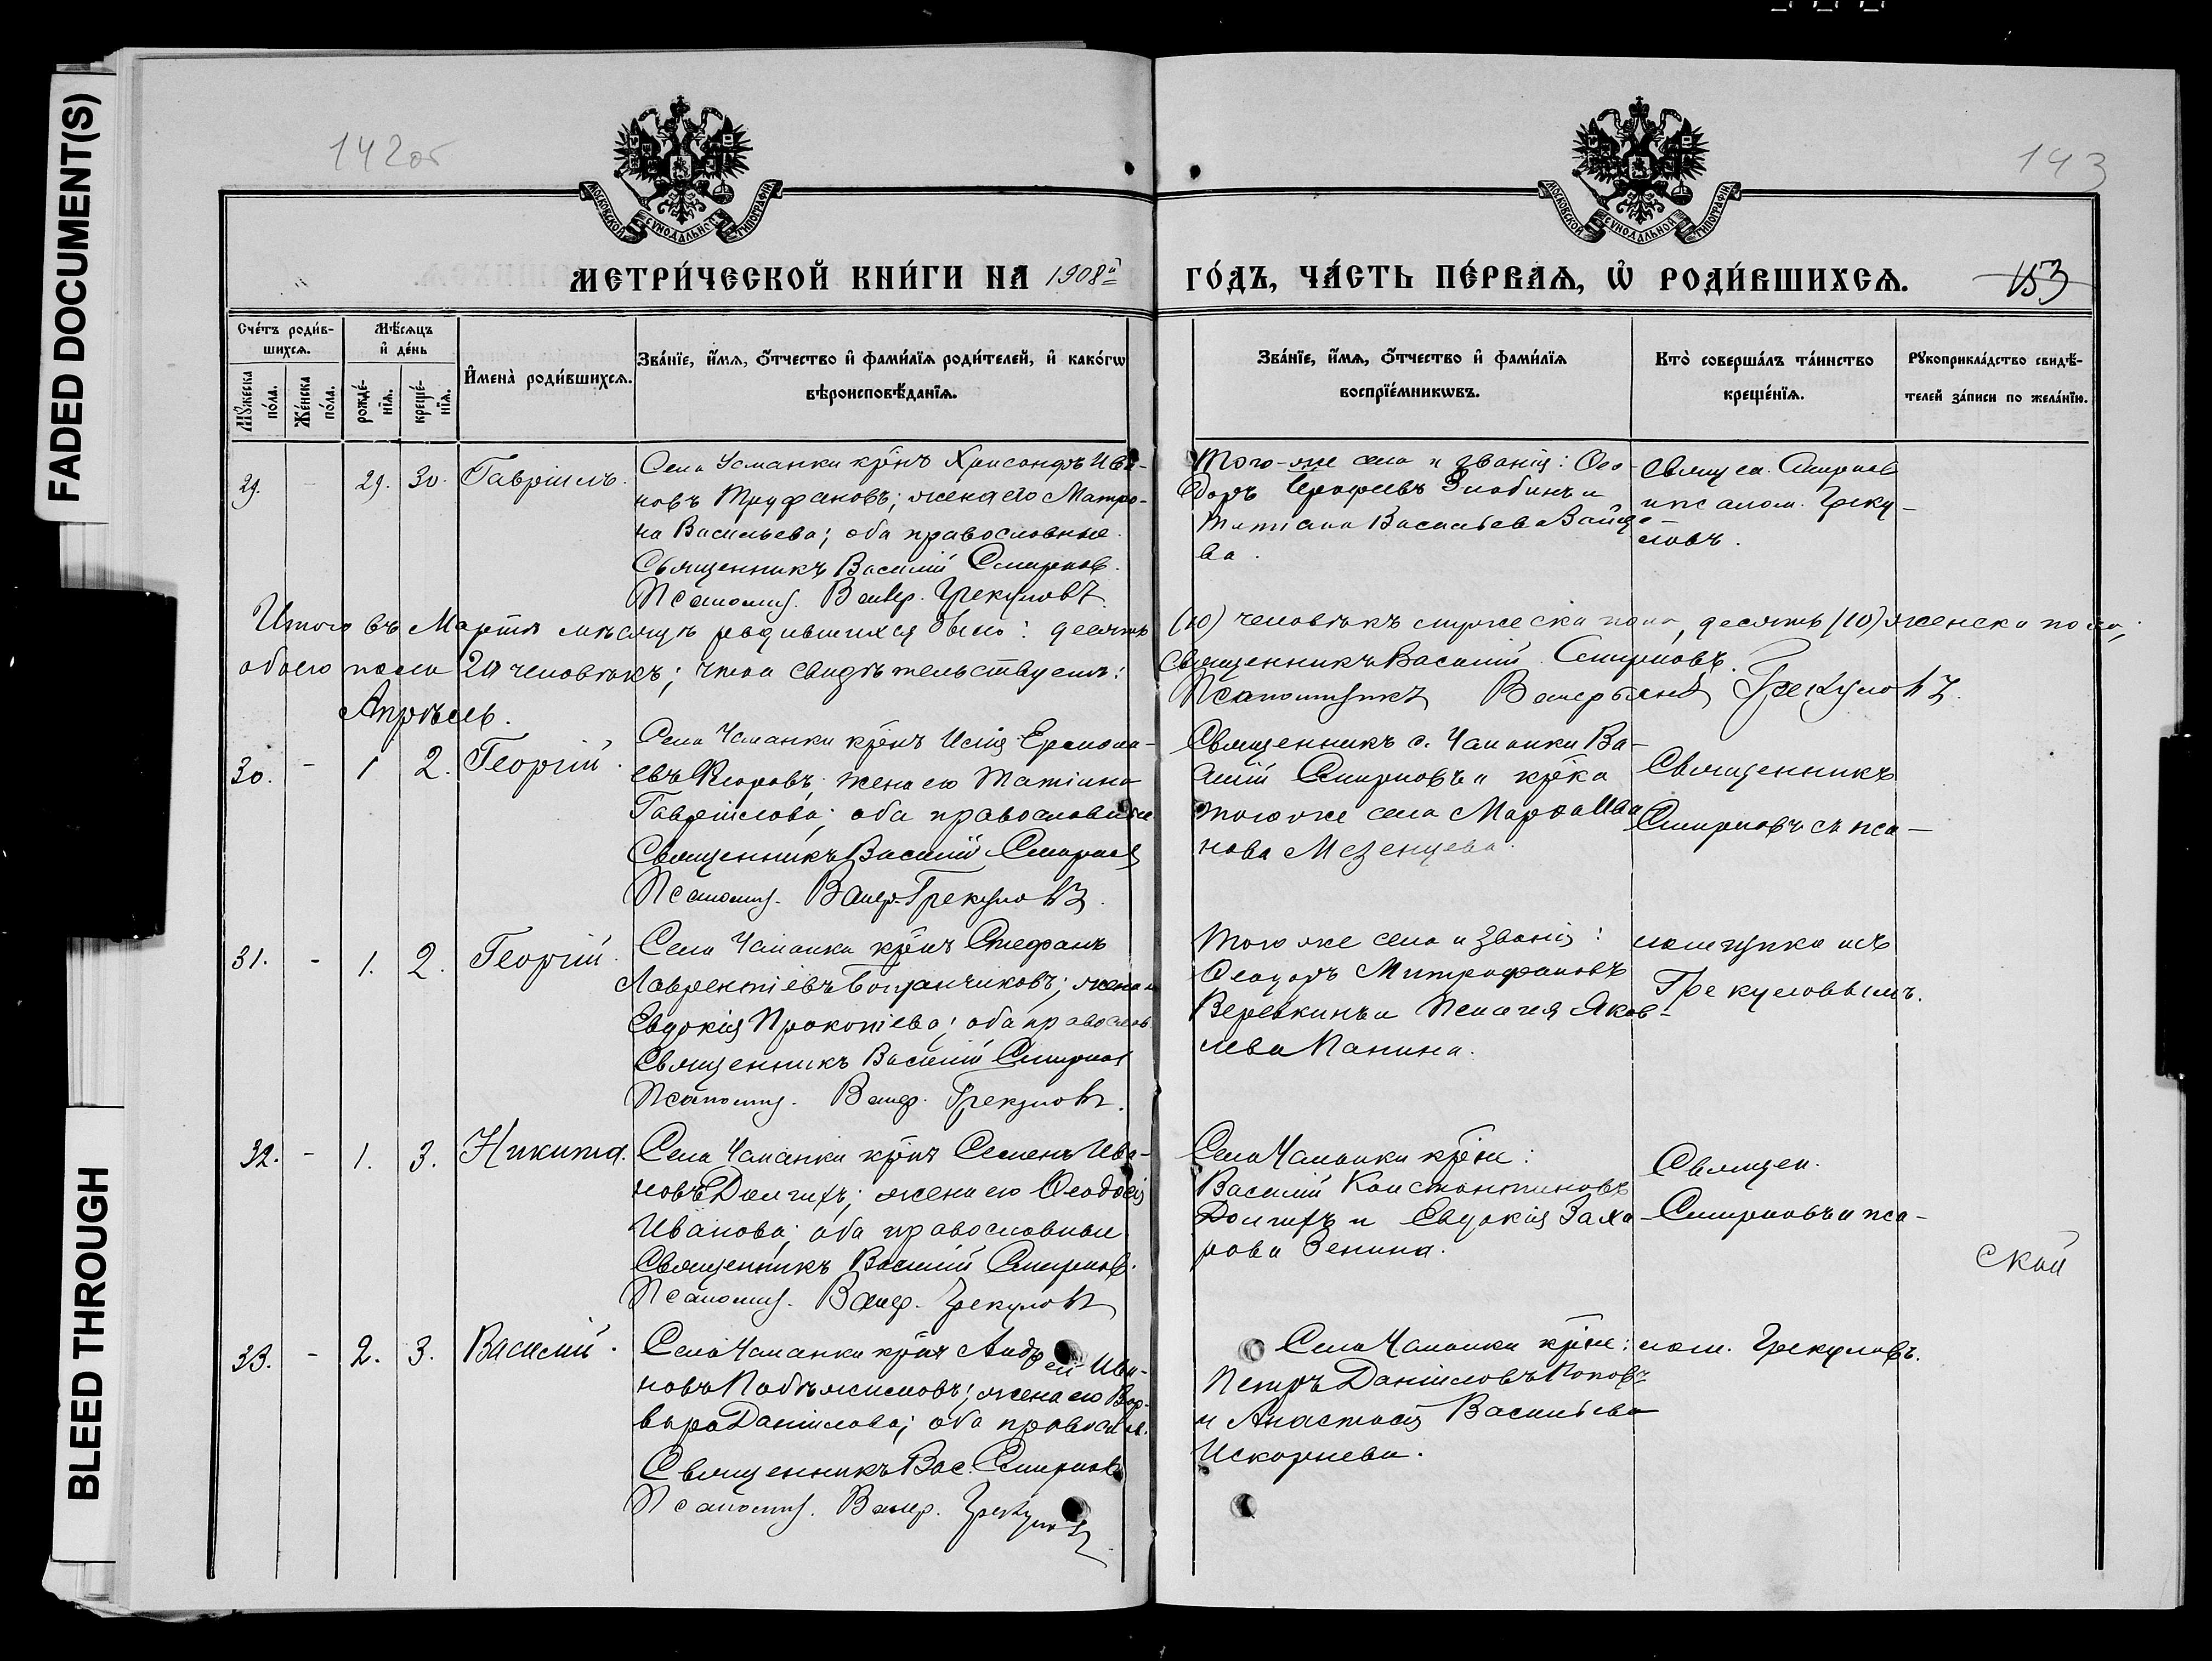 FADED DOCUMENT(S)
BLEED THROUGH
142об
143
МОСКОВСКОЙ СѴНОДАЛЬНОЙ ТИПОГРАФІИ
МОСКОВСКОЙ СѴНОДАЛЬНОЙ ТИПОГРАФІИ
МЕТРИ́ЧЕСКОЙ КНИ́ГИ НА 1908й ГО́ДЪ, ЧА́СТЬ ПЕ́РВАѦ, Ѡ҆ РОДИ́ВШИХСѦ.
153
Сче́тъ роди́в-
шихсѧ.
Мꙋ́жеска по́ла.
Же́нска по́ла.
Мѣ́сѧцъ
и҆ де́нь
рожде́-
нїѧ.
креще́-
нїѧ.
И҆мена̀ роди́вшихсѧ.
Зва́нїе, и҆́мѧ, ѻ҆́тчество и҆ фами́лїѧ роди́телей, и҆ како́гѡ
вѣроисповѣ́данїѧ.
Зва́нїе, и҆́мѧ, ѻ҆́тчество и҆ фами́лїѧ
воспрїе́мникѡвъ.
Кто̀ соверша́лъ та́инство
креще́нїѧ.
Рꙋкоприкла́дство свидѣ́-
телей за́писи по жела́нїю.
29. - 29. 30. Гавріилъ.
Села Чаманки кр̃нъ Хрисанфъ Ива-
новъ Труфановъ; жена его Матро-
на Васильева; оба православные.
Священникъ Василій Смирновъ.
Псаломщ. Валер. Грекуловъ.
Того-же села и званія: Ѳео-
доръ Ерофеевъ Злобинъ и
Татіана Васильева
ва.
Священ. Смирновъ
и псалом. Греку-
ловъ.
Итого въ Мартѣ мѣсяцѣ родившихся было: десять (10) человѣкъ мужеска пола, десять (10) женска пола;
обоего пола 20 человѣкъ; въ чемъ свидѣтельствуемъ: Священникъ Василій Смирновъ.
Псаломщикъ Валерьянъ Грекуловъ.
Апрѣль.
30. - 1 2. Георгій.
Села Чаманки кр̃нъ Исаія Ермола-
евъ Егоровъ; жена его Татіана
Гавріилова; оба православные
Священникъ Василій Смирновъ
Псаломщ. Валер. Грекуловъ.
Священникъ с. Чаманки Ва-
силій Смирновъ и кр̃ка
того же села Марѳа Ива
нова Мезенцева.
Священникъ
Смирновъ съ пса-
31. - 1. 2. Георгій.
Села Чаманки кр̃нъ Стефанъ
Лаврентіевъ Богданчиковъ; жена его
Евдокія Прокопіева; оба православ.
Священникъ Василій Смирновъ
Псаломщ. Валер. Грекуловъ.
Того же села и званія:
Ѳеодоръ Митрофановъ
Веревкинъ и Пелагія Яков-
лева Панина.
ломщикомъ
Грекуловымъ.
32. - 1. 3. Никита.
Села Чаманки кр̃нъ Семенъ Ива-
новъ Долгихъ; жена его Ѳеодосія
Иванова; оба православные.
Священникъ Василій Смирновъ.
Псаломщ. Валер. Грекуловъ
Села Чаманки кр̃не:
Василій Константиновъ
Долгихъ и Евдокія Заха-
рова Зенина.
Священ.
Смирновъ и пса-
ской
33. - 2. 3. Василій.
Села Чаманки кр̃нъ Андрей Ива-
новъ Побѣжимовъ; жена его Вар-
вара Даніилова; оба правосл.
Священникъ Вас. Смирновъ
Псаломщ. Валер. Грекуловъ
Села Чаманки кр̃не:
Петръ Даніиловъ Поповъ
и Анастасія Васильева
Искорнева.
лом. Грекуловъ.